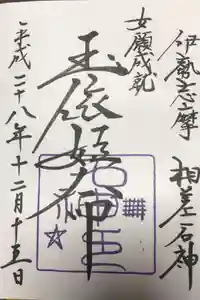 伊勢志摩 相差石神
女願成就
玉依姫命
平成二十八年十二月十五日